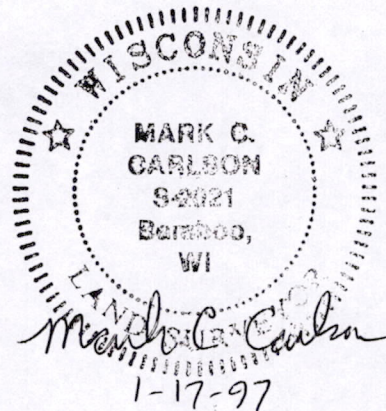 WISCONSIN
MARK C.
CARLSON
S-2021
Baraboo,
WI
LAND SURVEYOR
Mark C Carlson
1-17-97